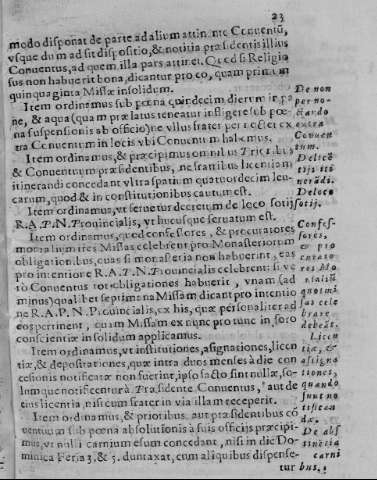 23
modo disponat de parte ad alium attinente Conuentũ,
vsque dum ad sit dispositio, & notitia præsidentis illius
Conuentus, ad quem illa pars attinet. Quod si Religio
sus non habuerit bona, dicantur pro eo, quam primum
quinquaginta Missæ insolidum.
Item ordinamus sub pœna quindecim dierum in pa
ne, & aqua (quam prælatus teneatur infligere sub pœ-
na suspensionis ab officio) ne vllus frater pernoctet ex
tra Conuentum in locis vbi Conuentum habemus.
Item ordinamus, & præcipimus omnibus Prioribus
& Conuentuum præsidentibus, ne fratribus licentiam
itinerandi concedant vltra spatium quatuordecim leu-
carum, quod & in constitutionibus cautum est.
Item ordinamus, vt seruetur decretum de loco sotij
R. A. P. N. Prouincialis, vt hucusque seruatum est.
Item ordinamus, quod confessores, & procuratores
monialium tres Missas celebrent pro Monasteriorum
obligationibus, quas si monasteria non habuerint, eas
pro intentione R. A. P. N. Prouincialis celebrent: si ve
rò Conuentus tot obligationes habuerit, vnam (ad
minus) qualibet septimana Missam dicant pro intentio
ne R. A. P. N. Prouincialis, ex his, quæ personaliter ad
eos pertinent, quam Missam ex nunc pro tunc in foro
conscientiæ insolidum applicamus.
Item ordinamus, vt institutiones, assignationes, licen
tiæ, & depositationes, quæ intra duos menses à die con
cesionis notificatæ non fuerint, ipso facto sint nullæ, so-
lumque notificentur à Præsidente Conuentus, aut de
eius licentia, nisi cum frater in via illam receperit.
Item ordinamus, & prioribus, aut præsidentibus cō
ventuum sub pœna absolutionis à suis officijs præcipi-
mus, vt nulli carnium esum concedant, nisi in die Do-
minica Feria 3. & 5. duntaxat, cum aliquibus dispense-
tur
De non
per no-
ctando
extra
Conuen
tum.
De licẽ
tijs iti
nerãdi.
De loco
sotij.
Confes-
sores,
& pro
curato
res Mo
nialiũ
quot mi
sas cele
brare
debeãt.
Licen
tiæ, &
assigna
tiones,
quando
sunt no
tifican
dæ.
De abs
tinẽtia
carni
bus.